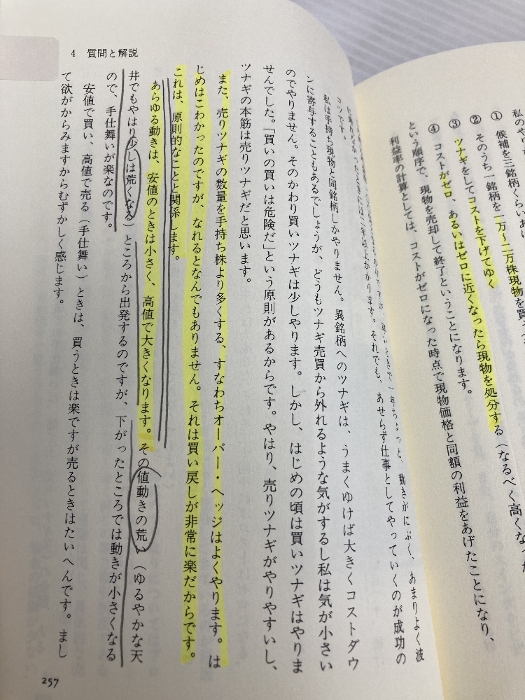 ① 候補を三銘柄くらいあ
② そのうち一銘柄を一万~二万株現物を買
③ ツナギをしてコストを下げてゆく
④ コストがゼロ、あるいはゼロに近くなったら現物を処分する（なるべく高くな
という順序で、現物を売却して終了ということになります。
利益率の計算としては、コストがゼロになった時点で現物価格と同額の利益をあげたことになり、
4 質問と解説
それでも、あせらず仕事としてやっていくのが成功の
私は手持ち現物と同銘柄しかやりません。異銘柄へのツナギは、うまくゆけば大きくコストダウ
ンに寄与することもあるでしょうが、どうもツナギ売買から外れるような気がするし私は気が小さい
のでやりません。そのかわり買いツナギは少しやります。しかし、はじめの頃は買いツナギはやりま
せんでした。「買いの買いは危険だ」という原則があるからです。やはり、売りツナギがやりやすいし、
ツナギの本筋は売りツナギだと思います。
また、売りツナギの数量を手持ち株より多くする、すなわちオーバー・ヘッジはよくやります。は
じめはこわかったのですが、なれるとなんでもありません。それは買い戻しが非常に楽だからです。
これは、原則的なことと関係します。
あらゆる動きは、安値のときは小さく、高値で大きくなります。その値動きの荒い（ゆるやかな天
井でもやはり少しは荒くなる）ところから出発するのですが、下がったところでは動きが小さくなる
ので、手仕舞いが楽なのです。
安値で買い、高値で売る（手仕舞い）ときは、買うときは楽ですが売るときはたいへんです。まし
て欲がからみますからむずかしく感じます。
257